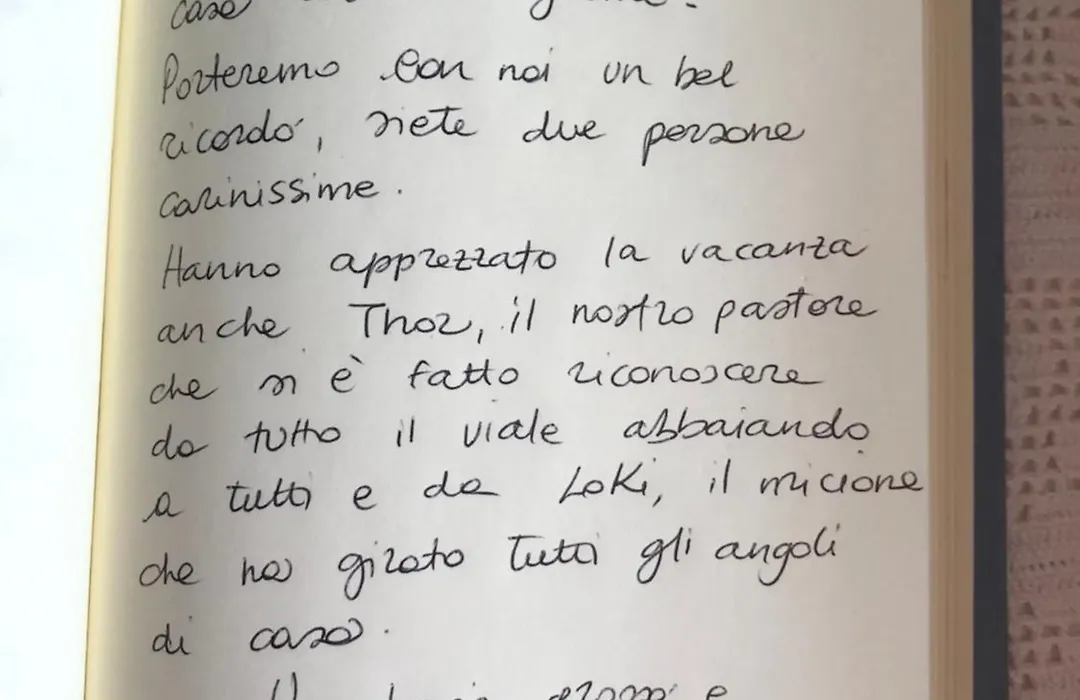 casa
Porteremo con noi un bel
ricordo, siete due persone
carinissime.
Hanno apprezzato la vacanza
anche Thor, il nostro pastore
che si è fatto riconoscere
da tutto il viale abbaiando
a tutti e da Loki, il micione
che ha girato tutti gli angoli
di casa.
e